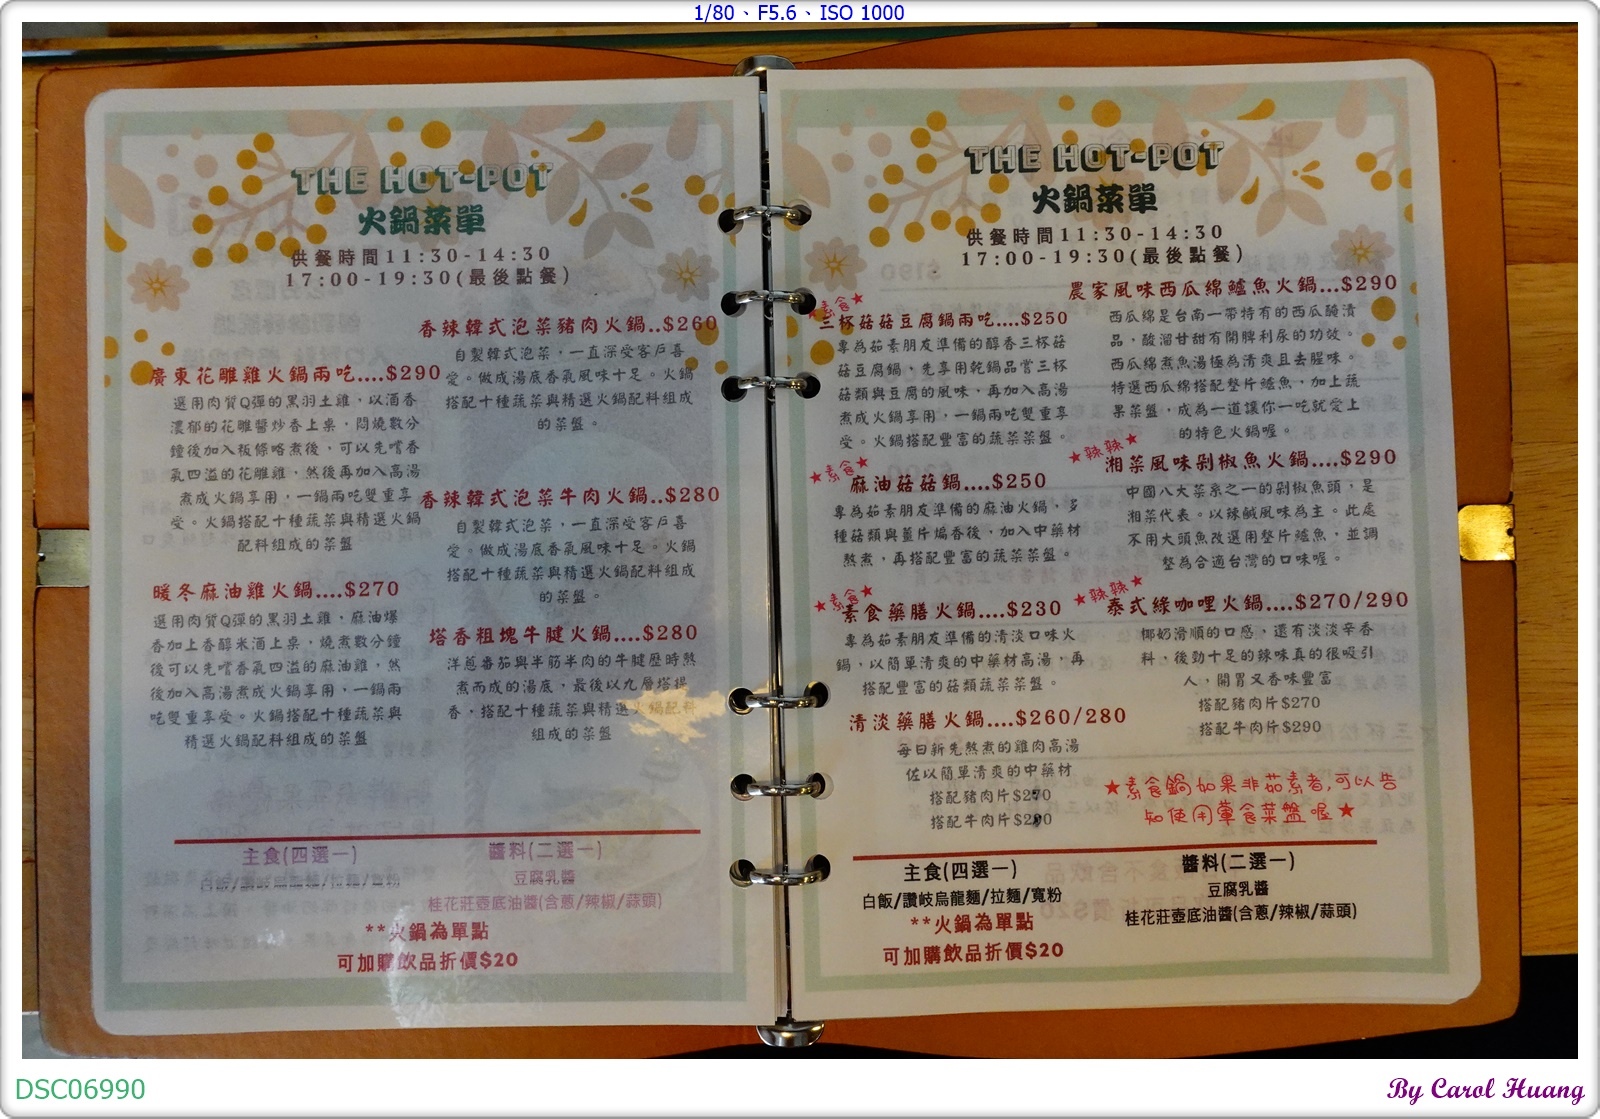 1/80、F5.6、ISO 1000
THE HOT-POT
火鍋菜單
供餐時間11:30-14:30
17:00-19:30(最後點餐)
廣東花雕雞火鍋兩吃....$290
選用肉質Q彈的黑羽土雞，以酒香
濃郁的花雕醬炒香上桌，悶燒數分
鐘後加入板條略煮後，可以先嚐香
氣四溢的花雕雞，然後再加入高湯
煮成火鍋享用，一鍋兩吃雙重享
受。火鍋搭配十種蔬菜與精選火鍋
配料組成的菜盤
暖冬麻油雞火鍋....$270
選用肉質Q彈的黑羽土雞，麻油爆
香加上香醇米酒上桌，燒煮數分鐘
後可以先嚐香氣四溢的麻油雞，然
後加入高湯煮成火鍋享用，一鍋兩
吃雙重享受。火鍋搭配十種蔬菜與
精選火鍋配料組成的菜盤
香辣韓式泡菜豬肉火鍋..$260
自製韓式泡菜，一直深受客戶喜
愛。做成湯底香氣風味十足。火鍋
搭配十種蔬菜與精選火鍋配料組成
的菜盤。
香辣韓式泡菜牛肉火鍋..$280
自製韓式泡菜，一直深受客戶喜
愛。做成湯底香氣風味十足。火鍋
搭配十種蔬菜與精選火鍋配料組成
的菜盤。
塔香粗塊牛腱火鍋....$280
洋蔥番茄與半筋半肉的牛腱歷時熬
煮而成的湯底，最後以九層塔提
香，搭配十種蔬菜與精選火鍋配料
組成的菜盤
主食(四選一)
白飯/讚岐烏龍麵/拉麵/寬粉
醬料(二選一)
豆腐乳醬
桂花莊壺底油醬(含蔥/辣椒/蒜頭)
**火鍋為單點
可加購飲品折價$20
THE HOT-POT
火鍋菜單
供餐時間11:30-14:30
17:00-19:30(最後點餐)
★素食★
三杯菇菇豆腐鍋兩吃....$250
專為茹素朋友準備的醇香三杯菇
菇豆腐鍋，先享用乾鍋品嘗三杯
菇類與豆腐的風味，再加入高湯
煮成火鍋享用，一鍋兩吃雙重享
受。火鍋搭配豐富的蔬菜菜盤。
★素食★
麻油菇菇鍋....$250
專為茹素朋友準備的麻油火鍋，多
種菇類與薑片煸香後，加入中藥材
熬煮，再搭配豐富的蔬菜菜盤。
★素食★
素食藥膳火鍋....$230
專為茹素朋友準備的清淡口味火
鍋，以簡單清爽的中藥材高湯，再
搭配豐富的菇類蔬菜菜盤。
清淡藥膳火鍋....$260/280
每日新先熬煮的雞肉高湯
佐以簡單清爽的中藥材
搭配豬肉片$270
搭配牛肉片$290
農家風味西瓜綿鱸魚火鍋...$290
西瓜綿是台南一帶特有的西瓜醃漬
品，酸溜甘甜有開脾利尿的功效。
西瓜綿煮魚湯極為清爽且去腥味。
特選西瓜綿搭配整片鱸魚，加上蔬
果菜盤，成為一道讓你一吃就愛上
的特色火鍋喔。
★辣辣★
湘菜風味剁椒魚火鍋....$290
中國八大菜系之一的剁椒魚頭，是
湘菜代表。以辣鹹風味為主。此處
不用大頭魚改選用整片鱸魚，並調
整為合適台灣的口味喔。
★辣辣★
泰式綠咖哩火鍋....$270/290
椰奶滑順的口感，還有淡淡辛香
料，後勁十足的辣味真的很吸引
人，開胃又香味豐富
搭配豬肉片$270
搭配牛肉片$290
★素食鍋如果非茹素者,可以告
知使用葷食菜盤喔★
主食(四選一)
白飯/讚岐烏龍麵/拉麵/寬粉
醬料(二選一)
豆腐乳醬
桂花莊壺底油醬(含蔥/辣椒/蒜頭)
**火鍋為單點
可加購飲品折價$20
DSC06990
By Carol Huang